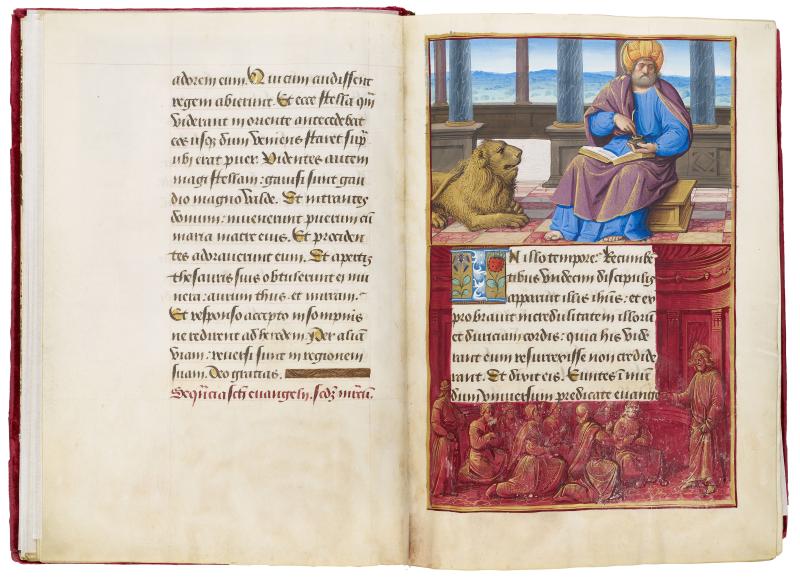 adorem eum. Qui cum audissent
regem abierunt. Et ecce stella quā
viderant in oriente antecedebat
eos usq; dum veniens staret sup̄
ubi erat puer. Videntes autem
magi stellam: gavisi sunt gau
dio magno valde. Et intrantes
domum: invenerunt puerum cū
maria matre eius. Et preciden
tes adoraverunt eum. Et apertis
thesauris suis obtulerunt ei mu
nera: aurum thus et mirram.
Et responso accepto in somnis
ne redirent ad herodem: per aliā
viam: reversi sunt in regionem
suam. Deo gratias.
Seqūcia scti evangelii. scdȝ
IN illo tempore: Recumbē
tibus undecim discipulis
apparuit illis ihūs: et ex
probravit incredulitatem illorū
et duriciam cordis: quia his vide
rant eum resurrexisse non credide
rant. Et dixit eis. Euntes ī mū
dum universum predicate evange